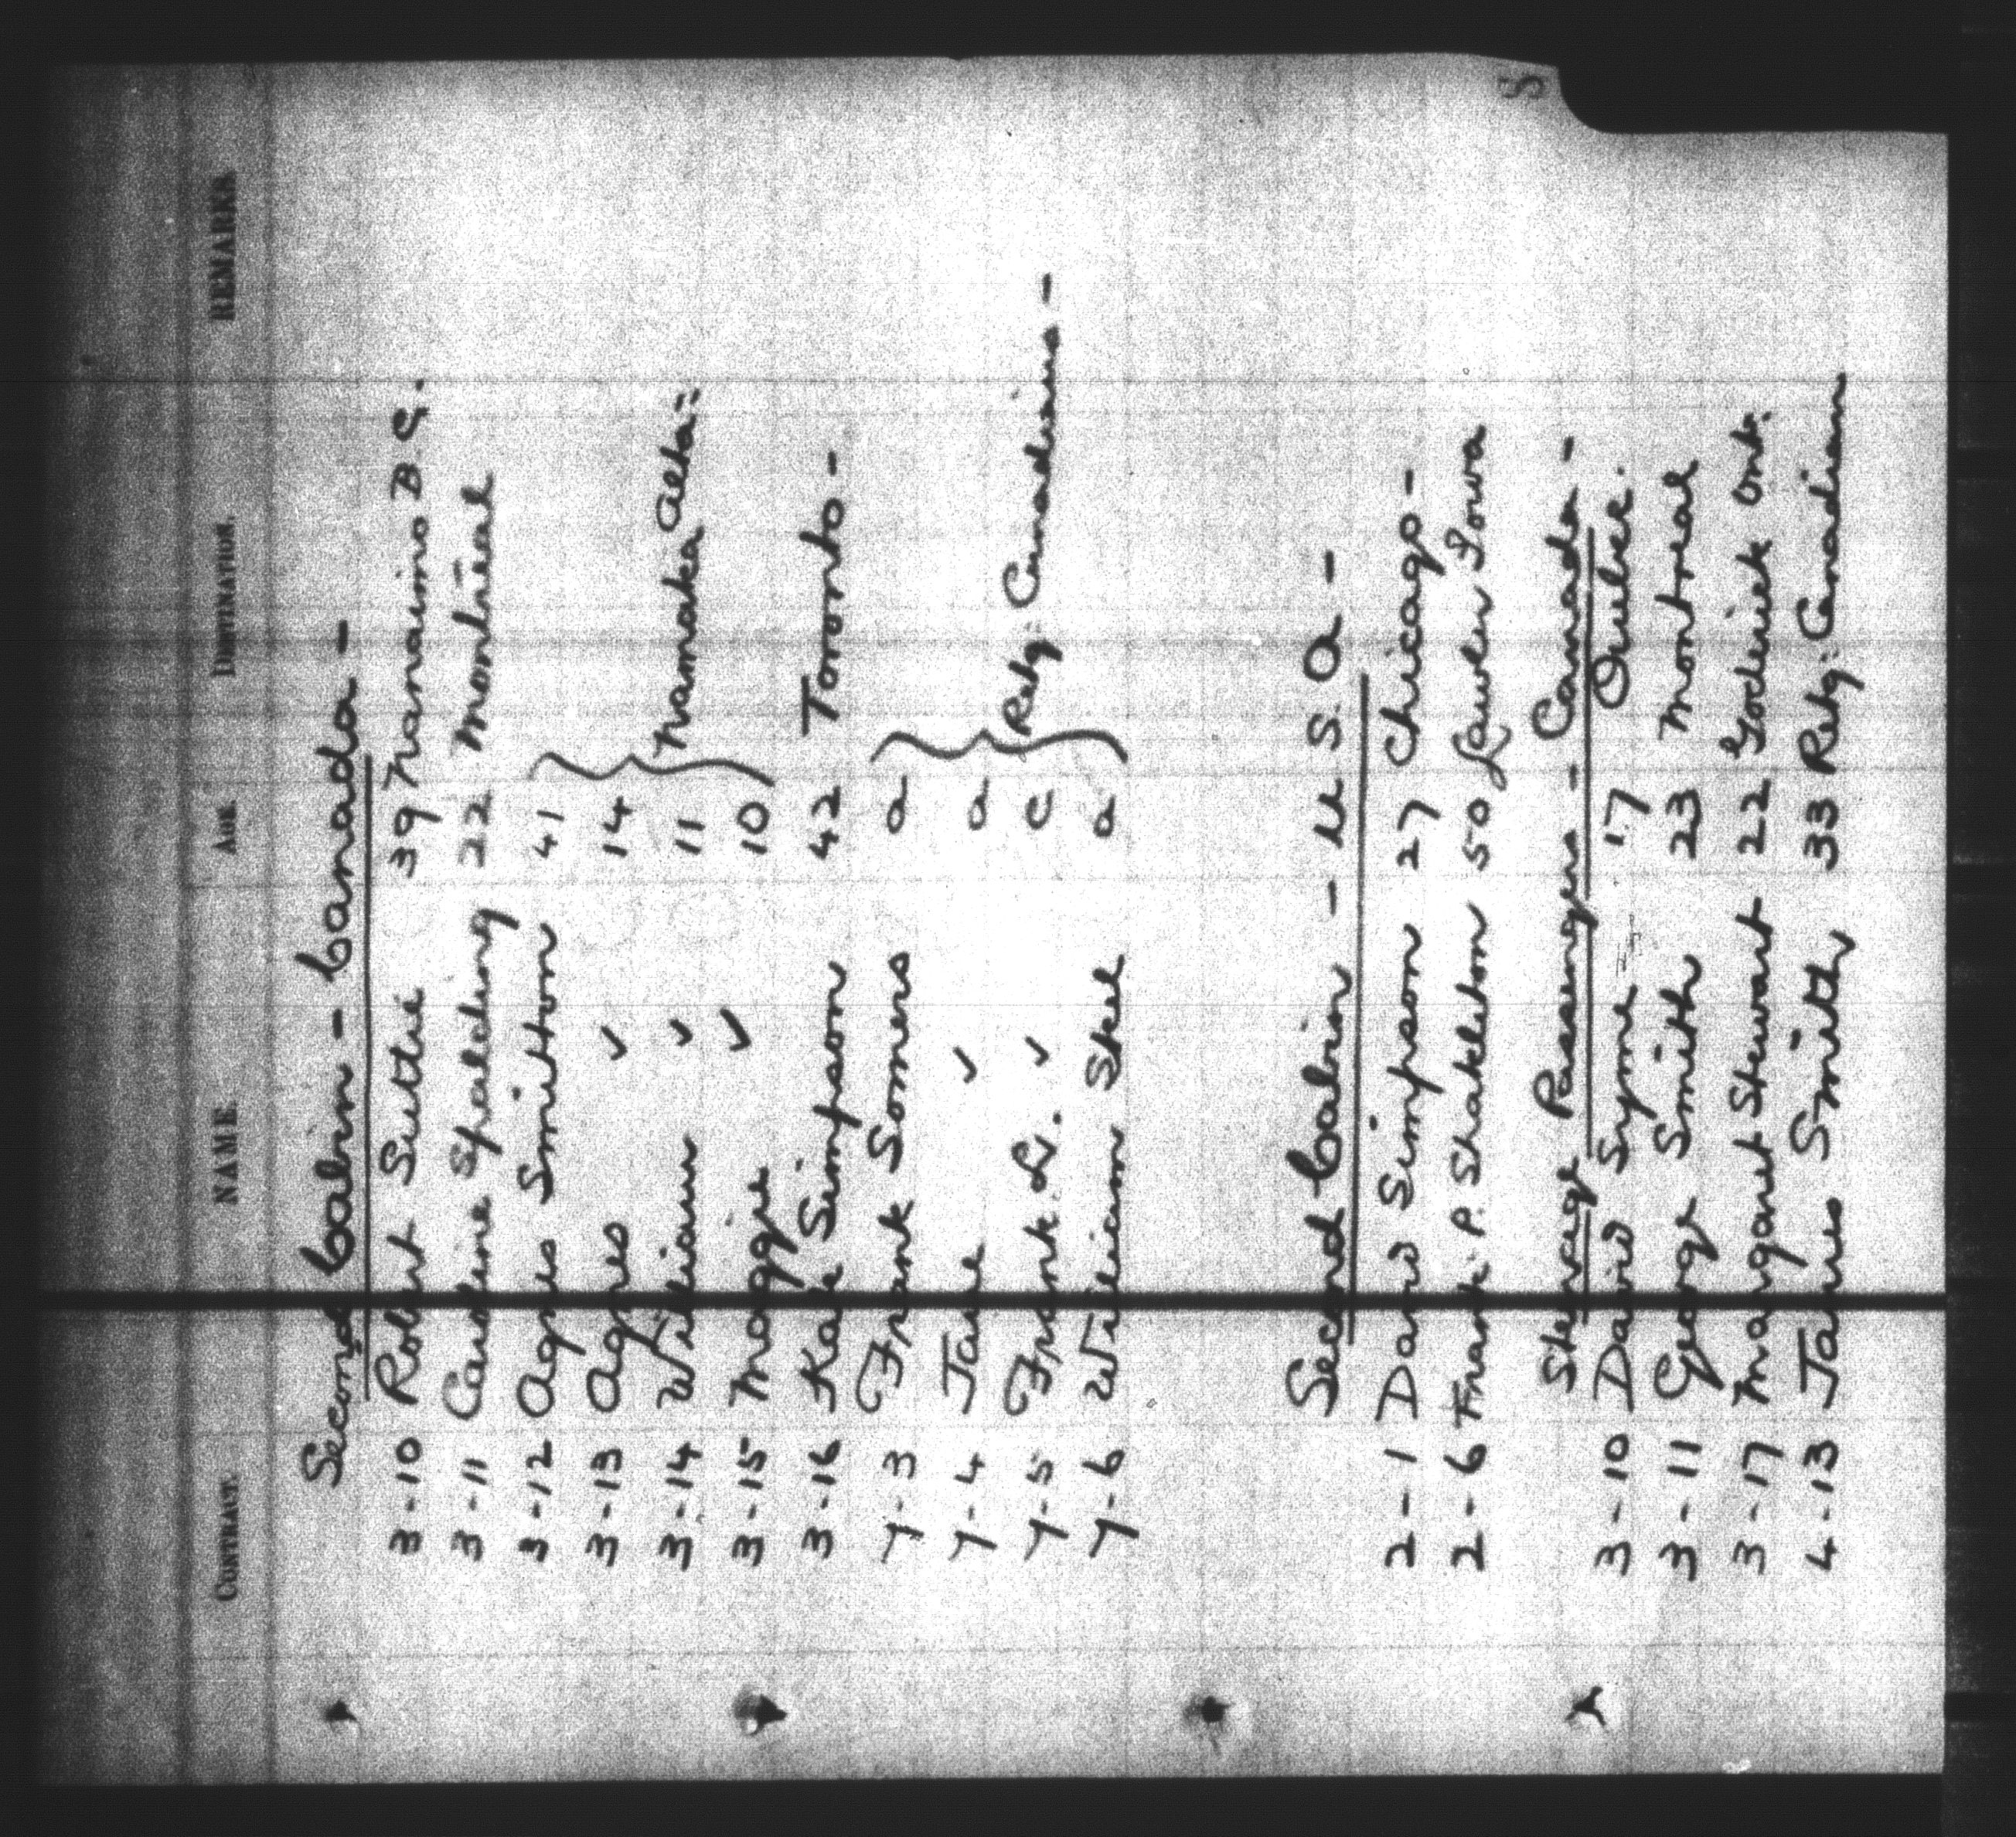 S
CONTRACT. NAME. AGE. DESTINATION. REMARKS.
Second Cabin - Canada -
3-10 Robert Suttie 39 Nanaimo B.C.
3-11 Caroline Spalding 22 Montreal
3-12 Agnes Smitton 41
3-13 Agnes ✓ 14
3-14 William ✓ 11 Namaka Alta=
3-15 Maggie ✓ 10
3-16 Kate Simpson 42 Toronto -
7-3 Frank Somers a
7-4 Jane ✓ a
7-5 Frank L. ✓ c Retg: Canadians -
7-6 William Skel a
Second Cabin - U.S.A -
2-1 David Simpson 27 Chicago -
2-6 Frank P. Shakleton 50 Lawler Iowa
Steerage Passengers - Canada -
3-10 David Syme 17 Quebec.
3-11 George Smith 23 Montreal
3-17 Margaret Stewart 22 Goderich Ont.
4-13 James Smith 33 Retg: Canadian